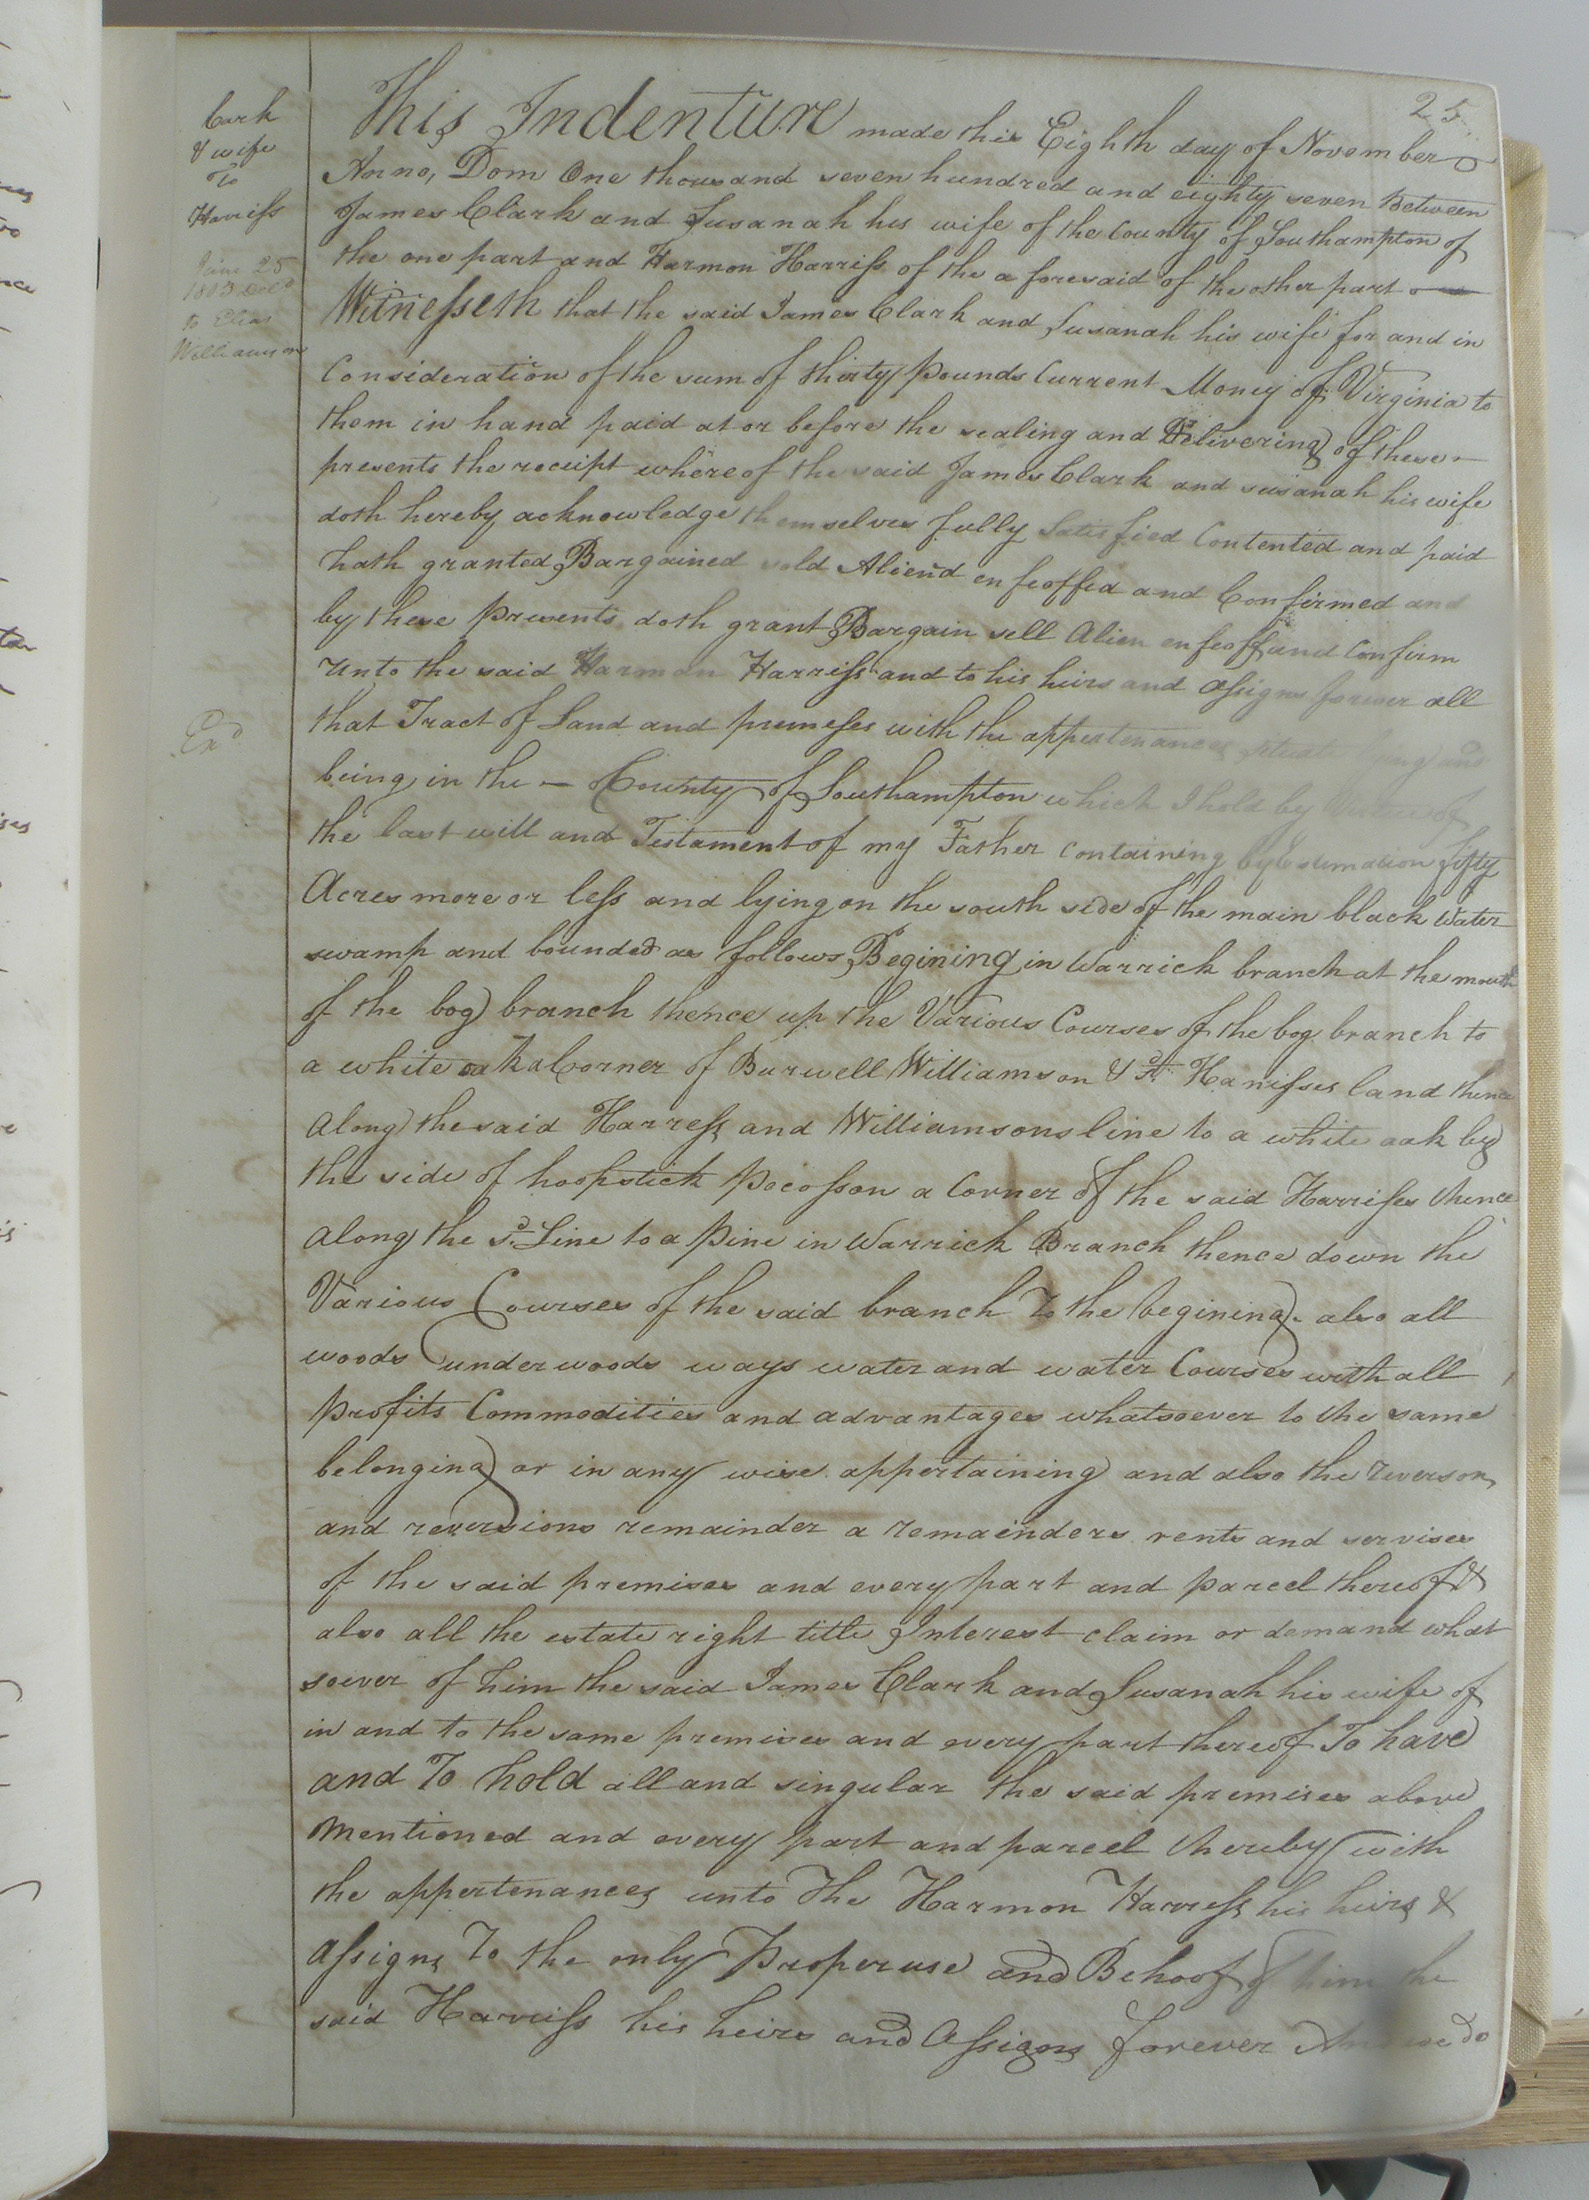 25
Cark
& wife
To
Harriss
June 25
1803 Deld
to Elias
Williamson
Exd
This Indenture made this Eighth day of November
Anno, Dom One thousand seven hundred and eighty seven Between
James Clark and Susanah his wife of the County of Southampton of
the one part and Harmon Harriss of the a foresaid of the other part
Witnesseth that the said James Clark and Susanah his wife for and in
Consideration of the sum of thirty Pounds Current Money of Virginia to
them in hand paid at or before the sealing and Delivering of these
presents the receipt whereof the said James Clark and susanah his wife
doth hereby acknowledge themselves fully Satisfied Contented and paid
hath granted Bargained sold Aliend enfeoffed and Confirmed and
by these Presents doth grant Bargain sell Alien enfeoff and Confirm
unto the said Harmon Harriss and to his heirs and Assigns forever all
that Tract of Land and premeses with the appertenances situate lying and
being in the – County of Southampton which I hold by Virtue of
the last will and Testament of my Father containing by Estimation fifty
Acres more or less and lying on the south side of the main black Water
swamp and bounded as follows Begining in Warrick branch at the mouth
of the bog branch thence up the Various Courses of the bog branch to
a white oak a Corner of Burwell Williamson & sd. Harrisses land thence
along the said Harress and Williamsons line to a white oak by
the side of hoopstick Pocosson a Corner of the said Harrises thence
along the sd. Line to a Pine in Warrick Branch thence down the
Various Courses of the said branch To the begining. also all
woods underwoods ways water and water Courses with all
Profits Commodities and advantages whatsoever to the same
belonging or in any wise appertaining and also the reverson
and reversions remainder a remainders rents and servises
of the said premises and every part and parcel thereof &
also all the estate right title Interest claim or demand what
soever of him the said James Clark and Susanah his wife of
in and to the same premises and every part thereof To have
and To hold all and singular the said premises above
Mentioned and every part and parcel thereby with
the appertenances unto The Harmon Harress his heirs &
Assigns To the only Proper use and Behoof of him the
said Harriss his heirs and Assigns forever And we do